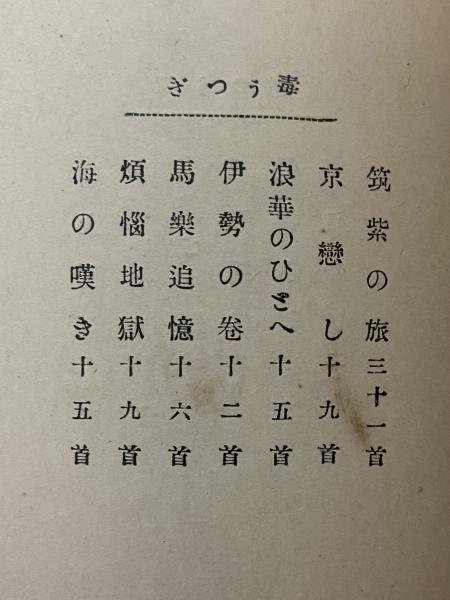 毒うつぎ
筑紫の旅三十一首
京戀し十九首
浪華のひとへ十五首
伊勢の卷十二首
馬樂追憶十六首
煩惱地獄十九首
海の嘆き十五首